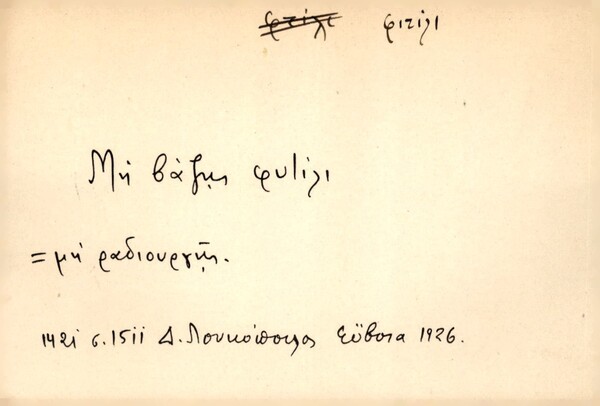 φιτίλι
Μή βάζης φυτίλι
= μή ραδιουργῆς.
1421 σ. 1511 Δ. Λουκόπουλος Εὔβοια 1926.